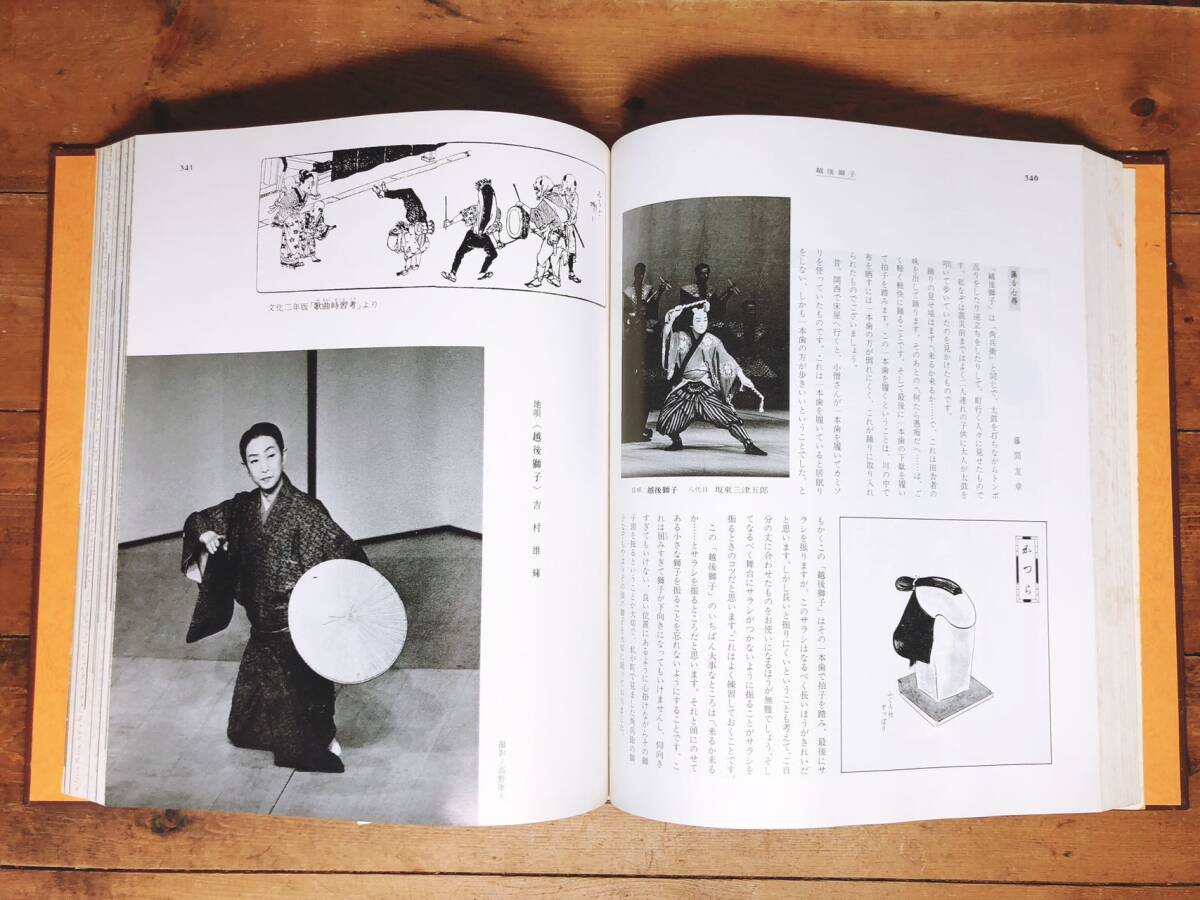 越後獅子
340
踊る心得
藤間友章
「越後獅子」は「角兵衛」と同じで、太鼓を打ちながらトンボ
返りをしたり逆立ちをしたりして、町行く人々に見せたもので
す。私なぞは震災前まではよく二人連れの子供に大人が太鼓を
叩いて歩いていたのを見かけたものです。
踊りの見せ場はまず〽来るか来るか……で、これは田舎者の
味を出して踊ります。そのあとの〽何たら愚痴だへ……は、ご
く軽く軽快に踊ることです。そして最後に一本歯の下駄を履い
て拍子を踏みます。この一本歯を履くということは、川の中で
布を晒すには一本歯の方が倒れにくく、これが踊りに取り入れ
られたものでございましょう。
昔、関西で床屋へ行くと、小僧さんが一本歯を履いてカミソ
リを使っていたものです。これは一本歯を履いていると居眠り
をしない、しかも一本歯の方が歩きいいということでした。と
長唄 越後獅子 八代目 坂東三津五郎
かつら
ふくろ付
すっぽり
もかくこの「越後獅子」はその一本歯で拍子を踏み、最後にサ
ラシを振りますが、このサラシはなるべく長いほうがきれいだ
と思います。しかし長いと振りにくいということも考えて、ご自
分の丈に合わせたものをお使いになるほうが無難でしょう。そし
てなるべく舞台にサラシがつかないように振ることがサラシを
振るときのコツだと思います。これはよく練習しておくことです。
この「越後獅子」のいちばん大事なところは〽来るか来る
か……とサラシを振るところだと思います。それと頭にのせて
ある小さな獅子を振ることを忘れないようにすることです。こ
れは屈みすぎて獅子が下向きになってもいけませんし、仰向き
すぎてもいけない。良い位置にあるように心掛けながらその獅
子頭を振るということが大切で、私が町で見ました角兵衛の獅
341
文化二年版「歌曲時習考」より
地唄〈越後獅子〉 吉村雄輝